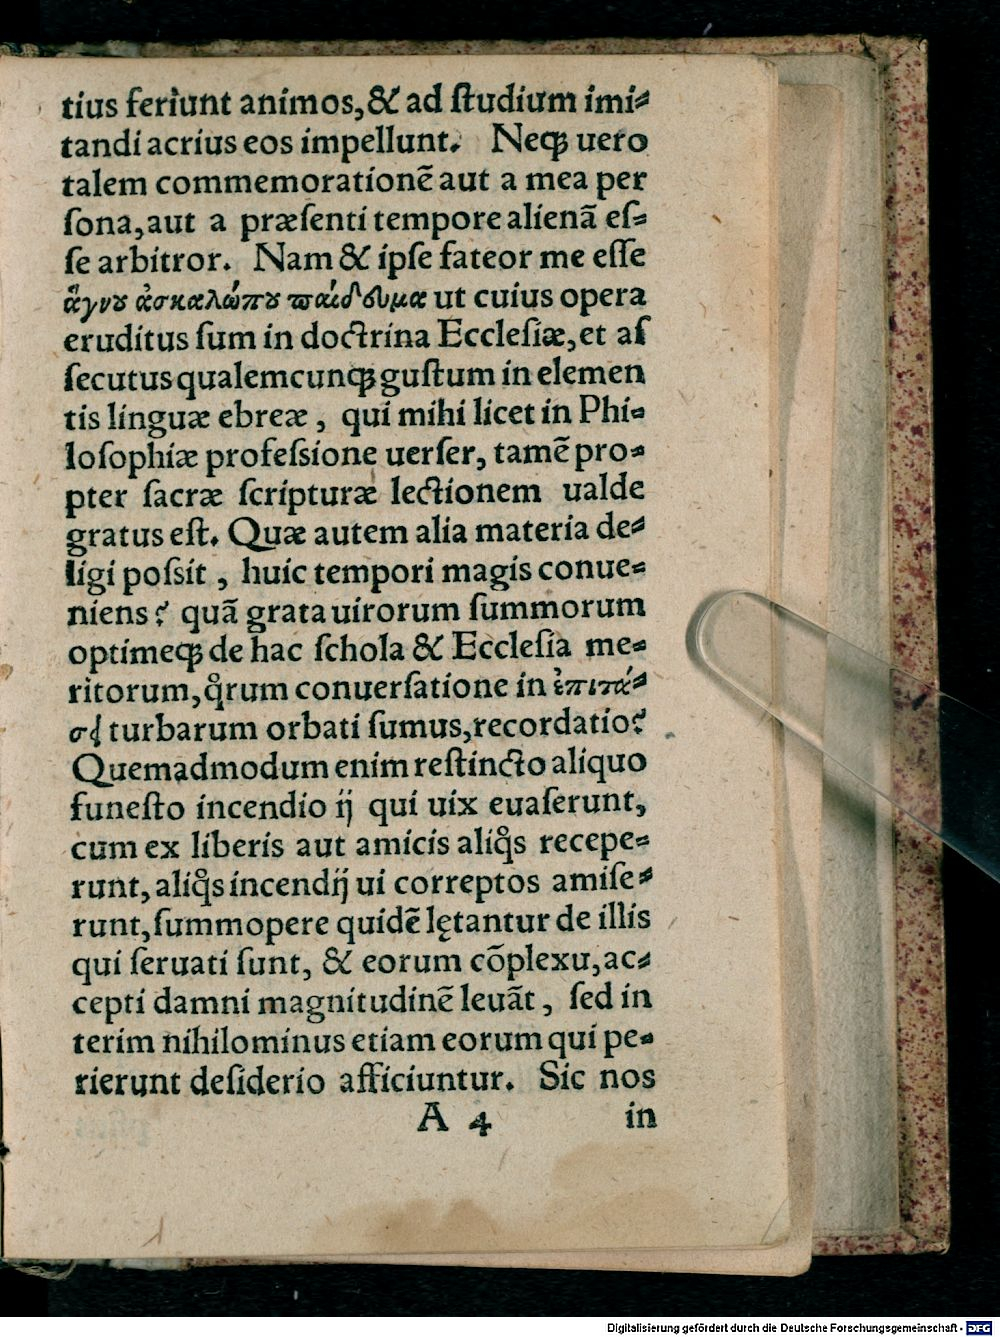 tius feriunt animos, & ad ſtudium imi⸗
tandi acrius eos impellunt. Neqꝫ uero
talem commemorationē aut a mea per
ſona, aut a præſenti tempore alienā eſ⸗
ſe arbitror. Nam & ipſe fateor me eſſe
ἅγνου ἀσκαλώπου παίδευμα ut cuius opera
eruditus ſum in doctrina Eccleſiæ, et aſ
ſecutus qualemcunqꝫ guſtum in elemen
tis linguæ ebreæ, qui mihi licet in Phi⸗
loſophiæ profeſsione uerſer, tamē pro⸗
pter ſacræ ſcripturæ lectionem ualde
gratus eſt. Quæ autem alia materia de⸗
ligi poſsit, huic tempori magis conue⸗
niens? quā grata uirorum ſummorum
optimeqꝫ de hac ſchola & Eccleſia me⸗
ritorum, qͦrum conuerſatione in ἐπιτά⸗
σει turbarum orbati ſumus, recordatio?
Quemadmodum enim reſtincto aliquo
funeſto incendio ij qui uix euaſerunt,
cum ex liberis aut amicis aliqͦs recepe⸗
runt, aliqͦs incendij ui correptos amiſe⸗
runt, ſummopere quidē lętantur de illis
qui ſeruati ſunt, & eorum cōplexu, ac⸗
cepti damni magnitudinē leuāt, ſed in
terim nihilominus etiam eorum qui pe⸗
rierunt deſiderio afficiuntur. Sic nos
A 4 in
Digitalisierung gefördert durch die Deutsche Forschungsgemeinschaft - DFG